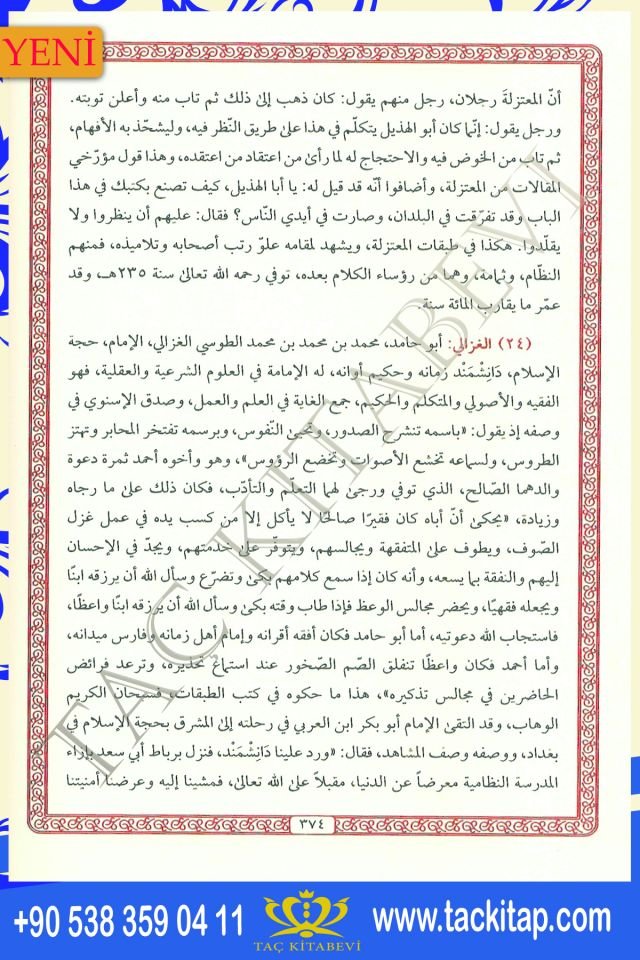 YENİ
أنّ المعتزلةَ رجلان، رجل منهم يقول: كان ذهب إلى ذلك ثم تاب منه وأعلن توبته.
ورجل يقول: إنّما كان أبو الهذيل يتكلّم في هذا على طريق النّظر فيه، وليشحّذ به الأفهام،
ثم تاب من الخوض فيه والاحتجاج له لما رأى من اعتقاد من اعتقده، وهذا قول مؤرّخي
المقالات من المعتزلة، وأضافوا أنّه قد قيل له: يا أبا الهذيل، كيف تصنع بكتبك في هذا
الباب وقد تفرّقت في البلدان، وصارت في أيدي النّاس؟ فقال: عليهم أن ينظروا ولا
يقلّدوا. هكذا في طبقات المعتزلة، ويشهد لمقامه علوّ رتب أصحابه وتلاميذه، فمنهم
النظّام، وثمامة، وهما من رؤساء الكلام بعده، توفي رحمه الله تعالى سنة ٢٣٥هـ، وقد
عمّر ما يقارب المائة سنة.
(٢٤) الغزالي: أبو حامد، محمد بن محمد بن محمد الطوسي الغزالي، الإمام، حجة
الإسلام، دَانِشْمَنْد زمانه وحكيم أوانه، له الإمامة في العلوم الشرعية والعقلية، فهو
الفقيه والأصولي والمتكلم والحكيم، جمع الغاية في العلم والعمل، وصدق الإسنوي في
وصفه إذ يقول: «باسمه تنشرح الصدور، وتحيىٰ النّفوس، وبرسمه تفتخر المحابر وتهتز
الطروس، ولسماعه تخشع الأصوات وتخضع الرؤوس»، وهو وأخوه أحمد ثمرة دعوة
والدهما الصّالح، الذي توفي ورجى لهما التعلّم والتأدّب، فكان ذلك على ما رجاه
وزيادة، «يحكى أنّ أباه كان فقيرًا صالحًا لا يأكل إلا من كسب يده في عمل غزل
الصّوف، ويطوف على المتفقهة ويجالسهم، ويتوفّر على خدمتهم، ويجدّ في الإحسان
إليهم والنفقة بما يسعه، وأنه كان إذا سمع كلامهم بكى وتضرّع وسأل الله أن يرزقه ابنًا
ويجعله فقهيًا، ويحضر مجالس الوعظ فإذا طاب وقته بكى وسأل الله أن يرزقه ابنًا واعظًا،
فاستجاب الله دعوتيه، أما أبو حامد فكان أفقه أقرانه وإمام أهل زمانه وفارس ميدانه،
وأما أحمد فكان واعظًا تنفلق الصّم الصّخور عند استماع تحذيره، وترعد فرائض
الحاضرين في مجالس تذكيره»، هذا ما حكوه في كتب الطبقات، فسبحان الكريم
الوهاب، وقد التقىٰ الإمام أبو بكر ابن العربي في رحلته إلى المشرق بحجة الإسلام في
بغداد، ووصفه وصف المشاهد، فقال: «ورد علينا دَانِشْمَنْد، فنزل برباط أبي سعد بإزاء
المدرسة النظامية معرضاً عن الدنيا، مقبلاً على الله تعالى، فمشينا إليه وعرضنا أمنيتنا
٣٧٤
TAÇ KİTABEVİ
+90 538 359 04 11
TAÇ KİTABEVİ
www.tackitap.com